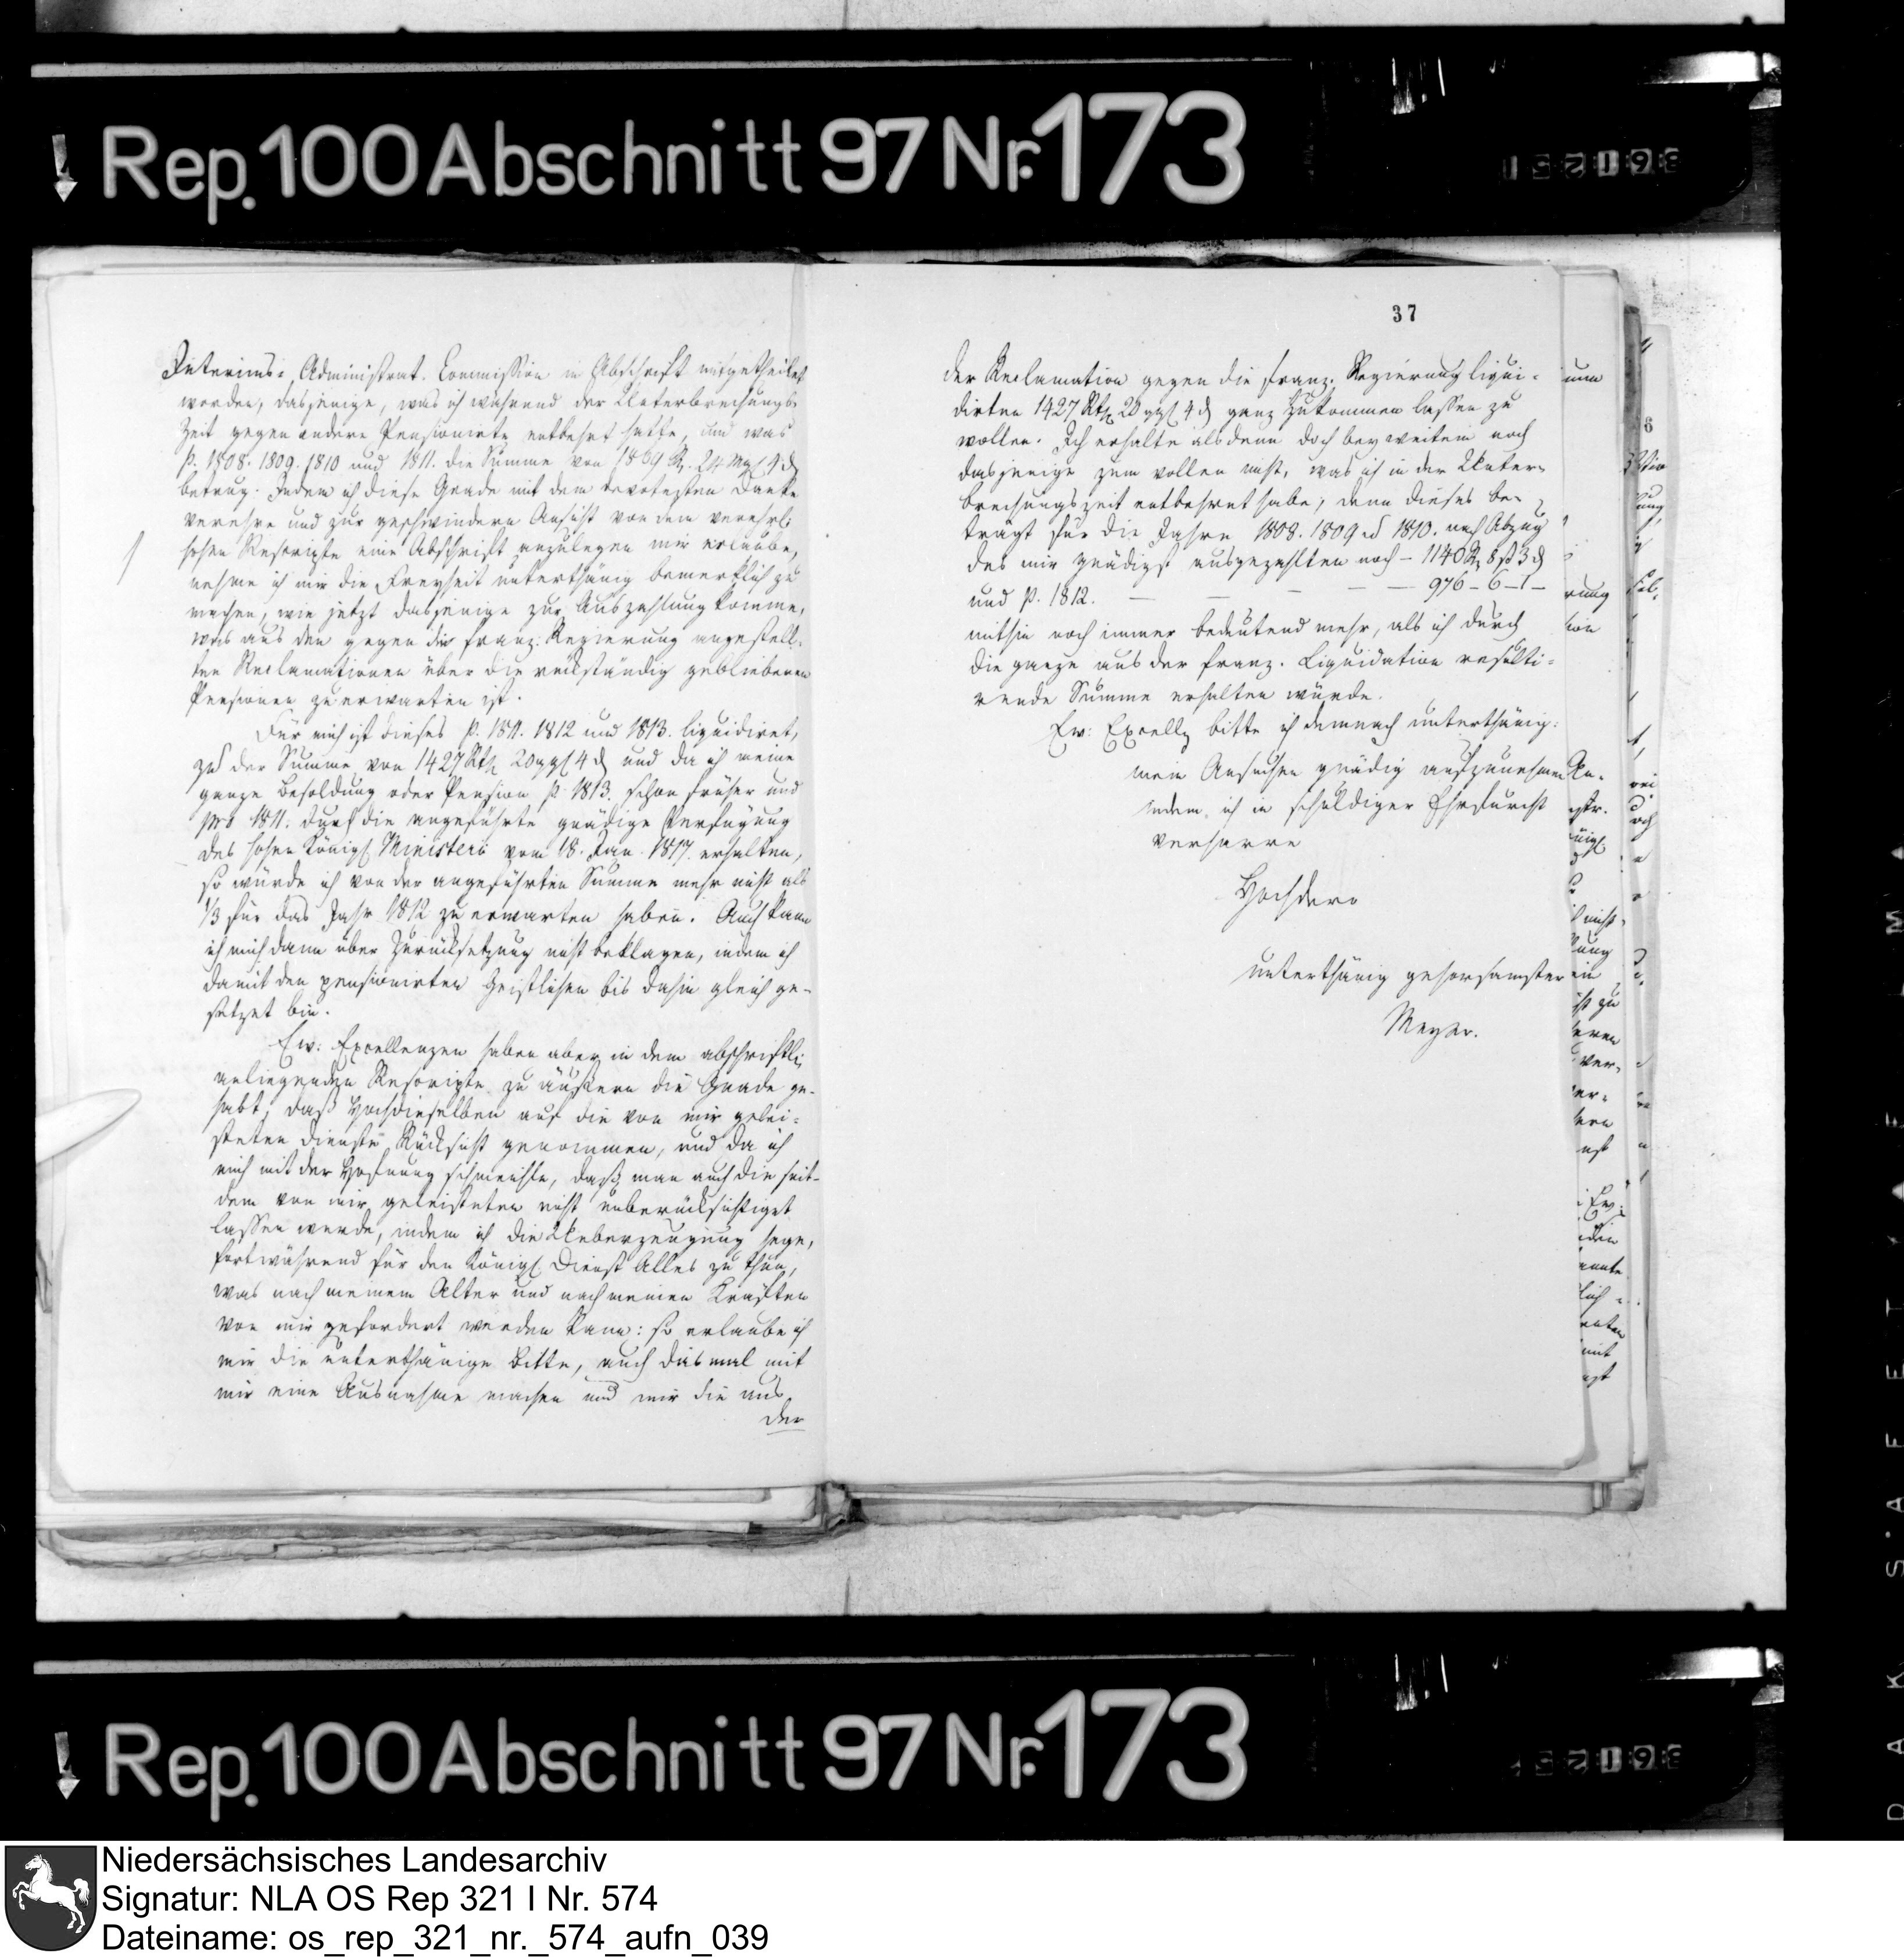 Rep. 100 Abschnitt 97 Nr. 173
Interims-Administrat. Commission in Abschrift mitgetheilet
worden, dasjenige, was ich während der Unterbrechungs
Zeit gegen andere Pensionirte entbehrt hatte, und was
p. 1808. 1809. 1810 und 1811. die Summe von
betrug. Indem ich diese Gnade mit dem devotesten Danke
verehre und zur geschwindern Ansicht von dem verehrl.
hohen Rescripte eine Abschrift anzulegen mir erlaube,
nehme ich mir die Freyheit unterthänig bemerklich zu
machen, wie jetzt dasjenige zur Auszahlung komme,
was aus den gegen die franz. Regierung angestell-
ten Reclamationen über die rückständig gebliebenen
Pensionen zu erwarten ist.
Für mich ist dieses p. 1811. 1812 und 1813. liquidiret,
zu der Summe von 1427 Rth 20 ggl 4 d und da ich meine
ganze Besoldung oder Pension p. 1813. schon früher und
pro 1811. durch die angeführte gnädige Verfügung
des hohen Königl Ministerii vom 18. Jan. 1817. erhalten,
so würde ich von der angeführten Summe mehr nicht als
1/3 für das Jahr 1812 zu erwarten haben. Auch kann
ich mich dann über Zurücksetzung nicht beklagen, indem ich
damit den pensionirten Geistlichen bis dahin gleich ge-
setzet bin.
Ew: Excellenzen haben aber in dem abschriftl:
anliegenden Rescripte zu äußern die Gnade ge-
habt, daß Hochdieselben auf die von mir gelei-
steten Dienste Rücksicht genommen, und da ich
mich mit der Hofnung schmeichle, daß man auch die seit-
dem von mir geleisteten nicht unberücksichtiget
lassen werde, indem ich die Ueberzeugung hege,
fortwährend für den Königl Dienst Alles zu thun,
was nach meinem Alter und nach meinen Kräften
von mir gefordert werden kann: so erlaube ich
mir die unterthänige Bitte, auch diesmal mit
mir eine Ausnahme machen und mir die aus
der
37
der Reclamation gegen die franz. Regierung liqui-
dirten 1427 Rth 20 ggl 4 d ganz zukommen lassen zu
wollen. Ich erhalte alsdenn doch bey weitem noch
dasjenige zum vollen nicht, was ich in der Unter-
brechungszeit entbehret habe; denn dieses be-
trägt für die Jahre 1808. 1809 u 1810. nach Abzug
des mir gnädigst ausgezahlten noch – 1140 R 8 ß 3 d
und p. 1812. — — — — 976 – 6 – 1 –
mithin noch immer bedeutend mehr, als ich durch
die ganze aus der franz. Liquidation resulti-
rende Summe erhalten würde.
Ew: Excellz bitte ich demnach unterthänig:
mein Ansuchen gnädig aufzunehmen
indem ich in schuldiger Ehrfurcht
verharre
Hochdero
unterthänig gehorsamster
Meyer.
Rep. 100 Abschnitt 97 Nr. 173
Niedersächsisches Landesarchiv
Signatur: NLA OS Rep 321 I Nr. 574
Dateiname: os_rep_321_nr._574_aufn_039